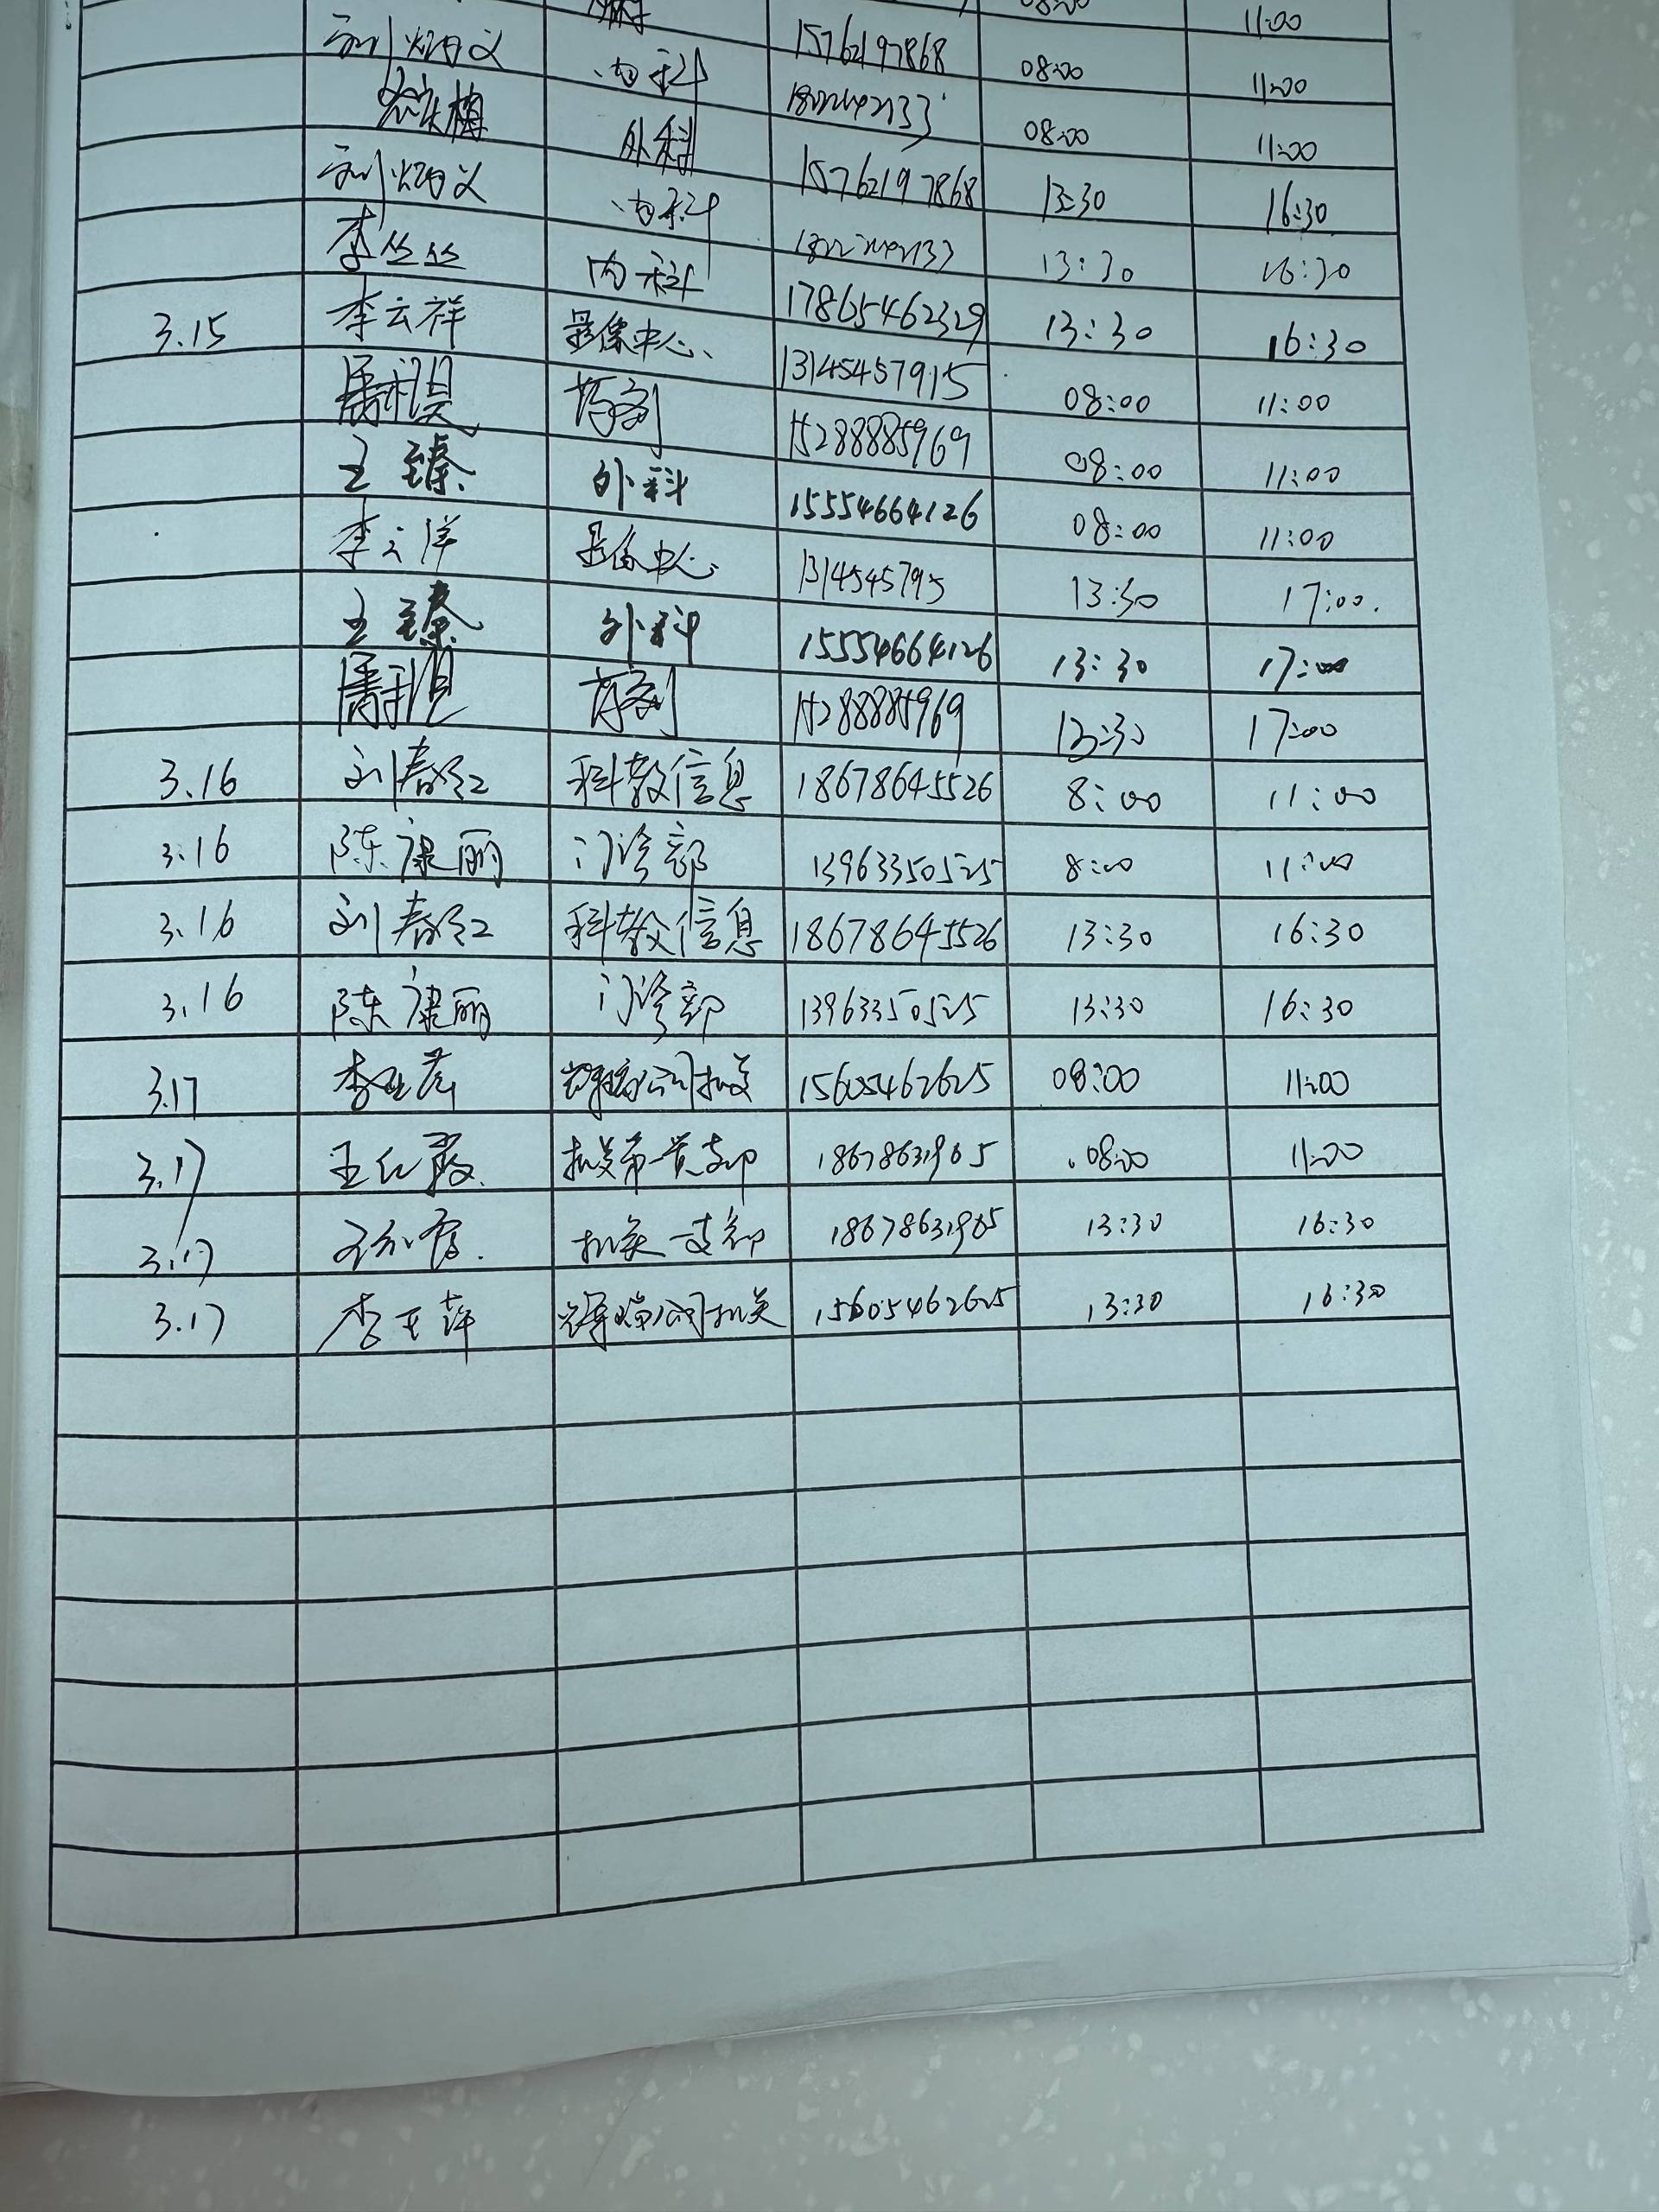 08:00 11:00
内科 15762197868 08:00 11:00
外科 08:00 11:00
内科 15762197868 13:30 16:30
李丛丛 内科 13:30 16:30
3.15 李云祥 影像中心 17865462329 13:30 16:30
药剂 13145457915 08:00 11:00
王臻 外科 15288885969 08:00 11:00
李云祥 影像中心 15554664126 08:00 11:00
王臻 外科 1314545795 13:30 17:00
药剂 15554664126 13:30 17:00
15288885969 13:30 17:00
3.16 刘春红 科教信息 18678645526 8:00 11:00
3.16 陈康丽 门诊部 13963350525 8:00 11:00
3.16 刘春红 科教信息 18678645526 13:30 16:30
3.16 陈康丽 门诊部 13963350525 13:30 16:30
3.17 公司机关 15605462625 08:00 11:00
3.17 王红霞 机关第一党支部 18678631905 08:00 11:00
3.17 机关一支部 18678631905 13:30 16:30
3.17 公司机关 15605462625 13:30 16:30